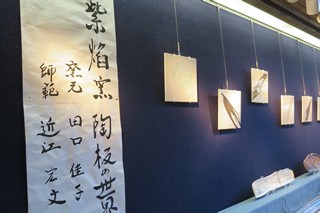 紫焰窯 陶板の世界
窯元 田口 佳子
師範 近江 宏文